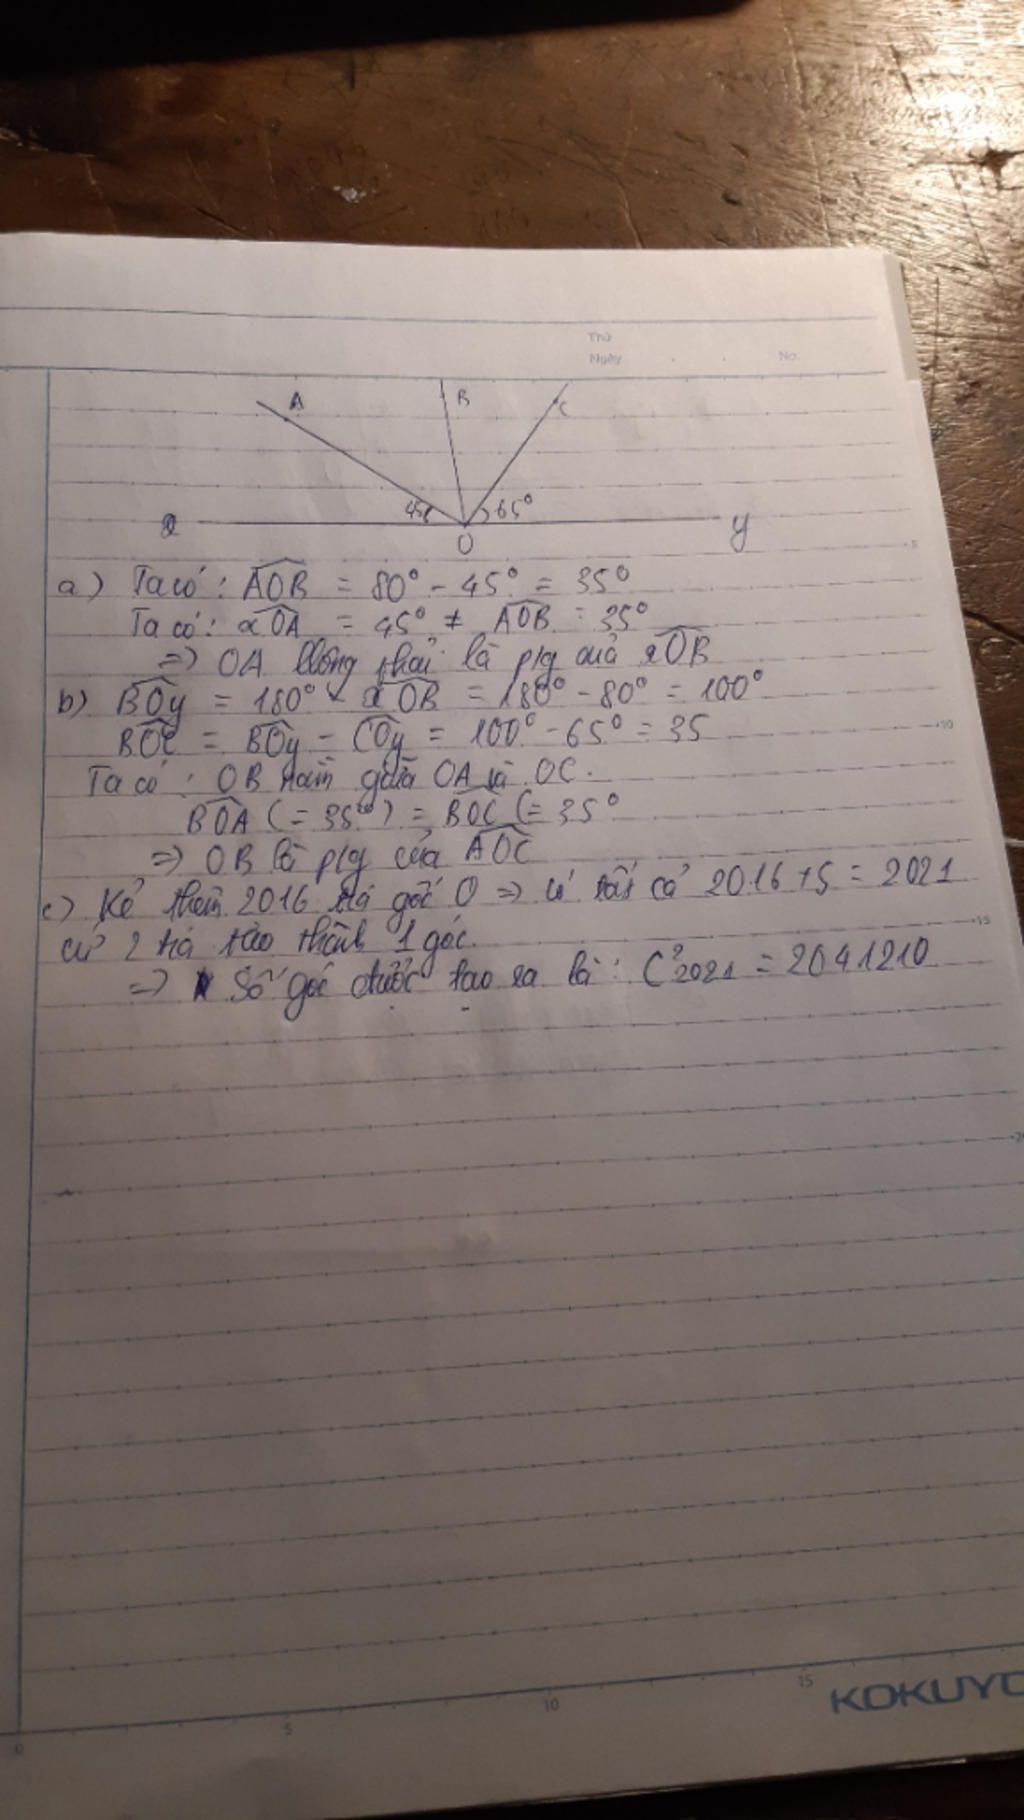 Thứ
Ngày . . No.
A B C
45° 65°
x O y
a) Ta có : AOB = 80° - 45° = 35°
Ta có : xOA = 45° ≠ AOB = 35°
=> OA không phải là p/g của xOB
b) BOy = 180° - xOB = 180° - 80° = 100°
BOC = BOy - COy = 100° - 65° = 35
Ta có : OB nằm giữa OA và OC.
BOA (= 35°) = BOC (= 35°
=> OB là p/g của AOC
c) Kẻ thêm 2016 tia gốc O => có tất cả 2016 + 5 = 2021
cứ 2 tia tạo thành 1 góc.
=> Số góc được tạo ra là : C²2021 = 2041210
5
10
15
20
0 5 10 15
KOKUYO